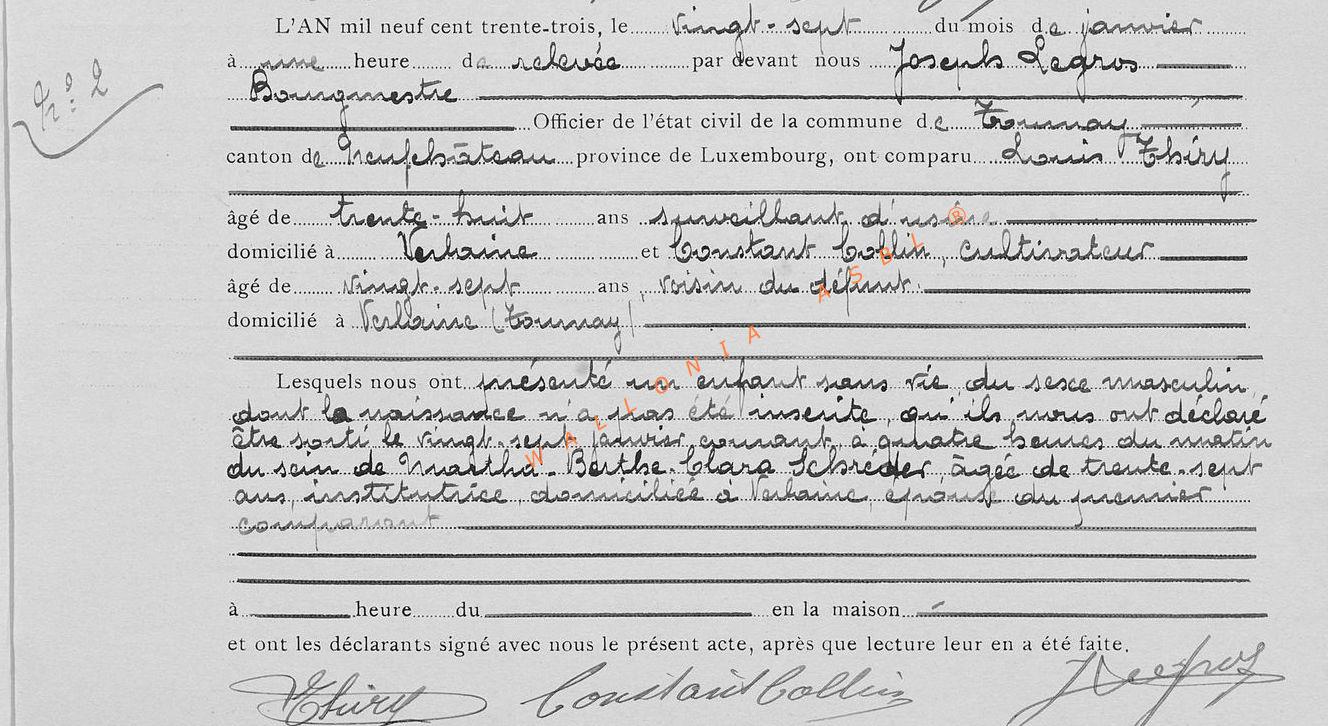 L'AN mil neuf cent trente-trois, le vingt-sept du mois de janvier
N° 2
à une heure de relevée par devant nous Joseph Legros
Bourgmestre
Officier de l'état civil de la commune de Tournay
canton de Neufchâteau province de Luxembourg, ont comparu Louis Thiry
âgé de trente-huit ans surveillant d'usine
domicilié à Verlaine et Constant Collin, cultivateur
âgé de vingt-sept ans, voisin du défunt.
domicilié à Verlaine (Tournay).
Lesquels nous ont présenté un enfant sans vie du sexe masculin
dont la naissance n'a pas été inscrite, qu'ils nous ont déclaré
être sorti le vingt-sept janvier courant, à quatre heures du matin
du sein de Martha-Berthe-Clara Schréder, âgée de trente-sept
ans, institutrice, domiciliée à Verlaine, épouse du premier
comparant
à heure du en la maison
et ont les déclarants signé avec nous le présent acte, après que lecture leur en a été faite.
Thiry Constant Collin J Legros
WALLONIA ASBL ®